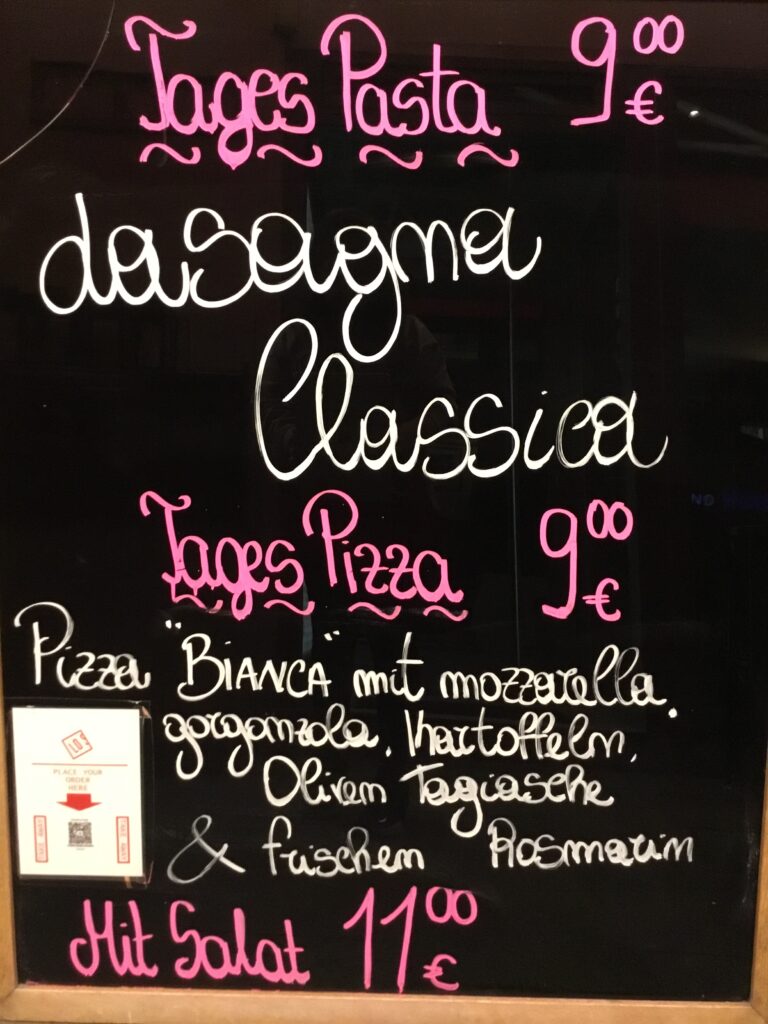 Tages Pasta 9.00 €
Lasagna
Classica
Tages Pizza 9.00 €
Pizza "BIANCA" mit mozzarella,
gorgonzola, Kartoffeln,
Oliven Taggiasche
& frischen Rosmarin
PLACE YOUR
ORDER
HERE
Mit Salat 11.00 €